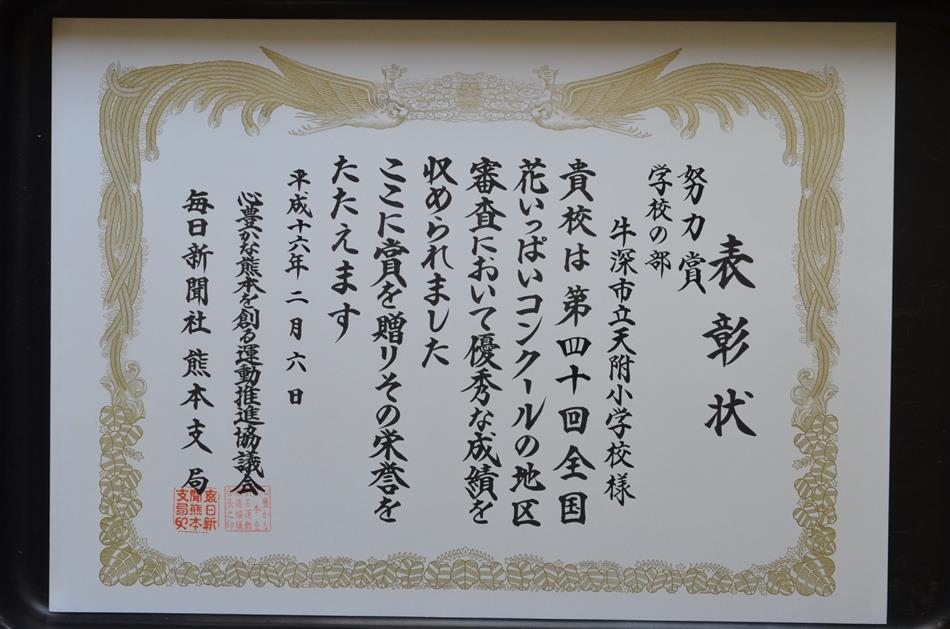 表彰状
努力賞
学校の部
牛深市立天附小学校様
貴校は第四十回全国
花いっぱいコンクールの地区
審査において優秀な成績を
収められました
ここに賞を贈りその栄誉を
たたえます
平成十六年二月六日
心豊かな熊本を創る運動推進協議会
毎日新聞社熊本支局